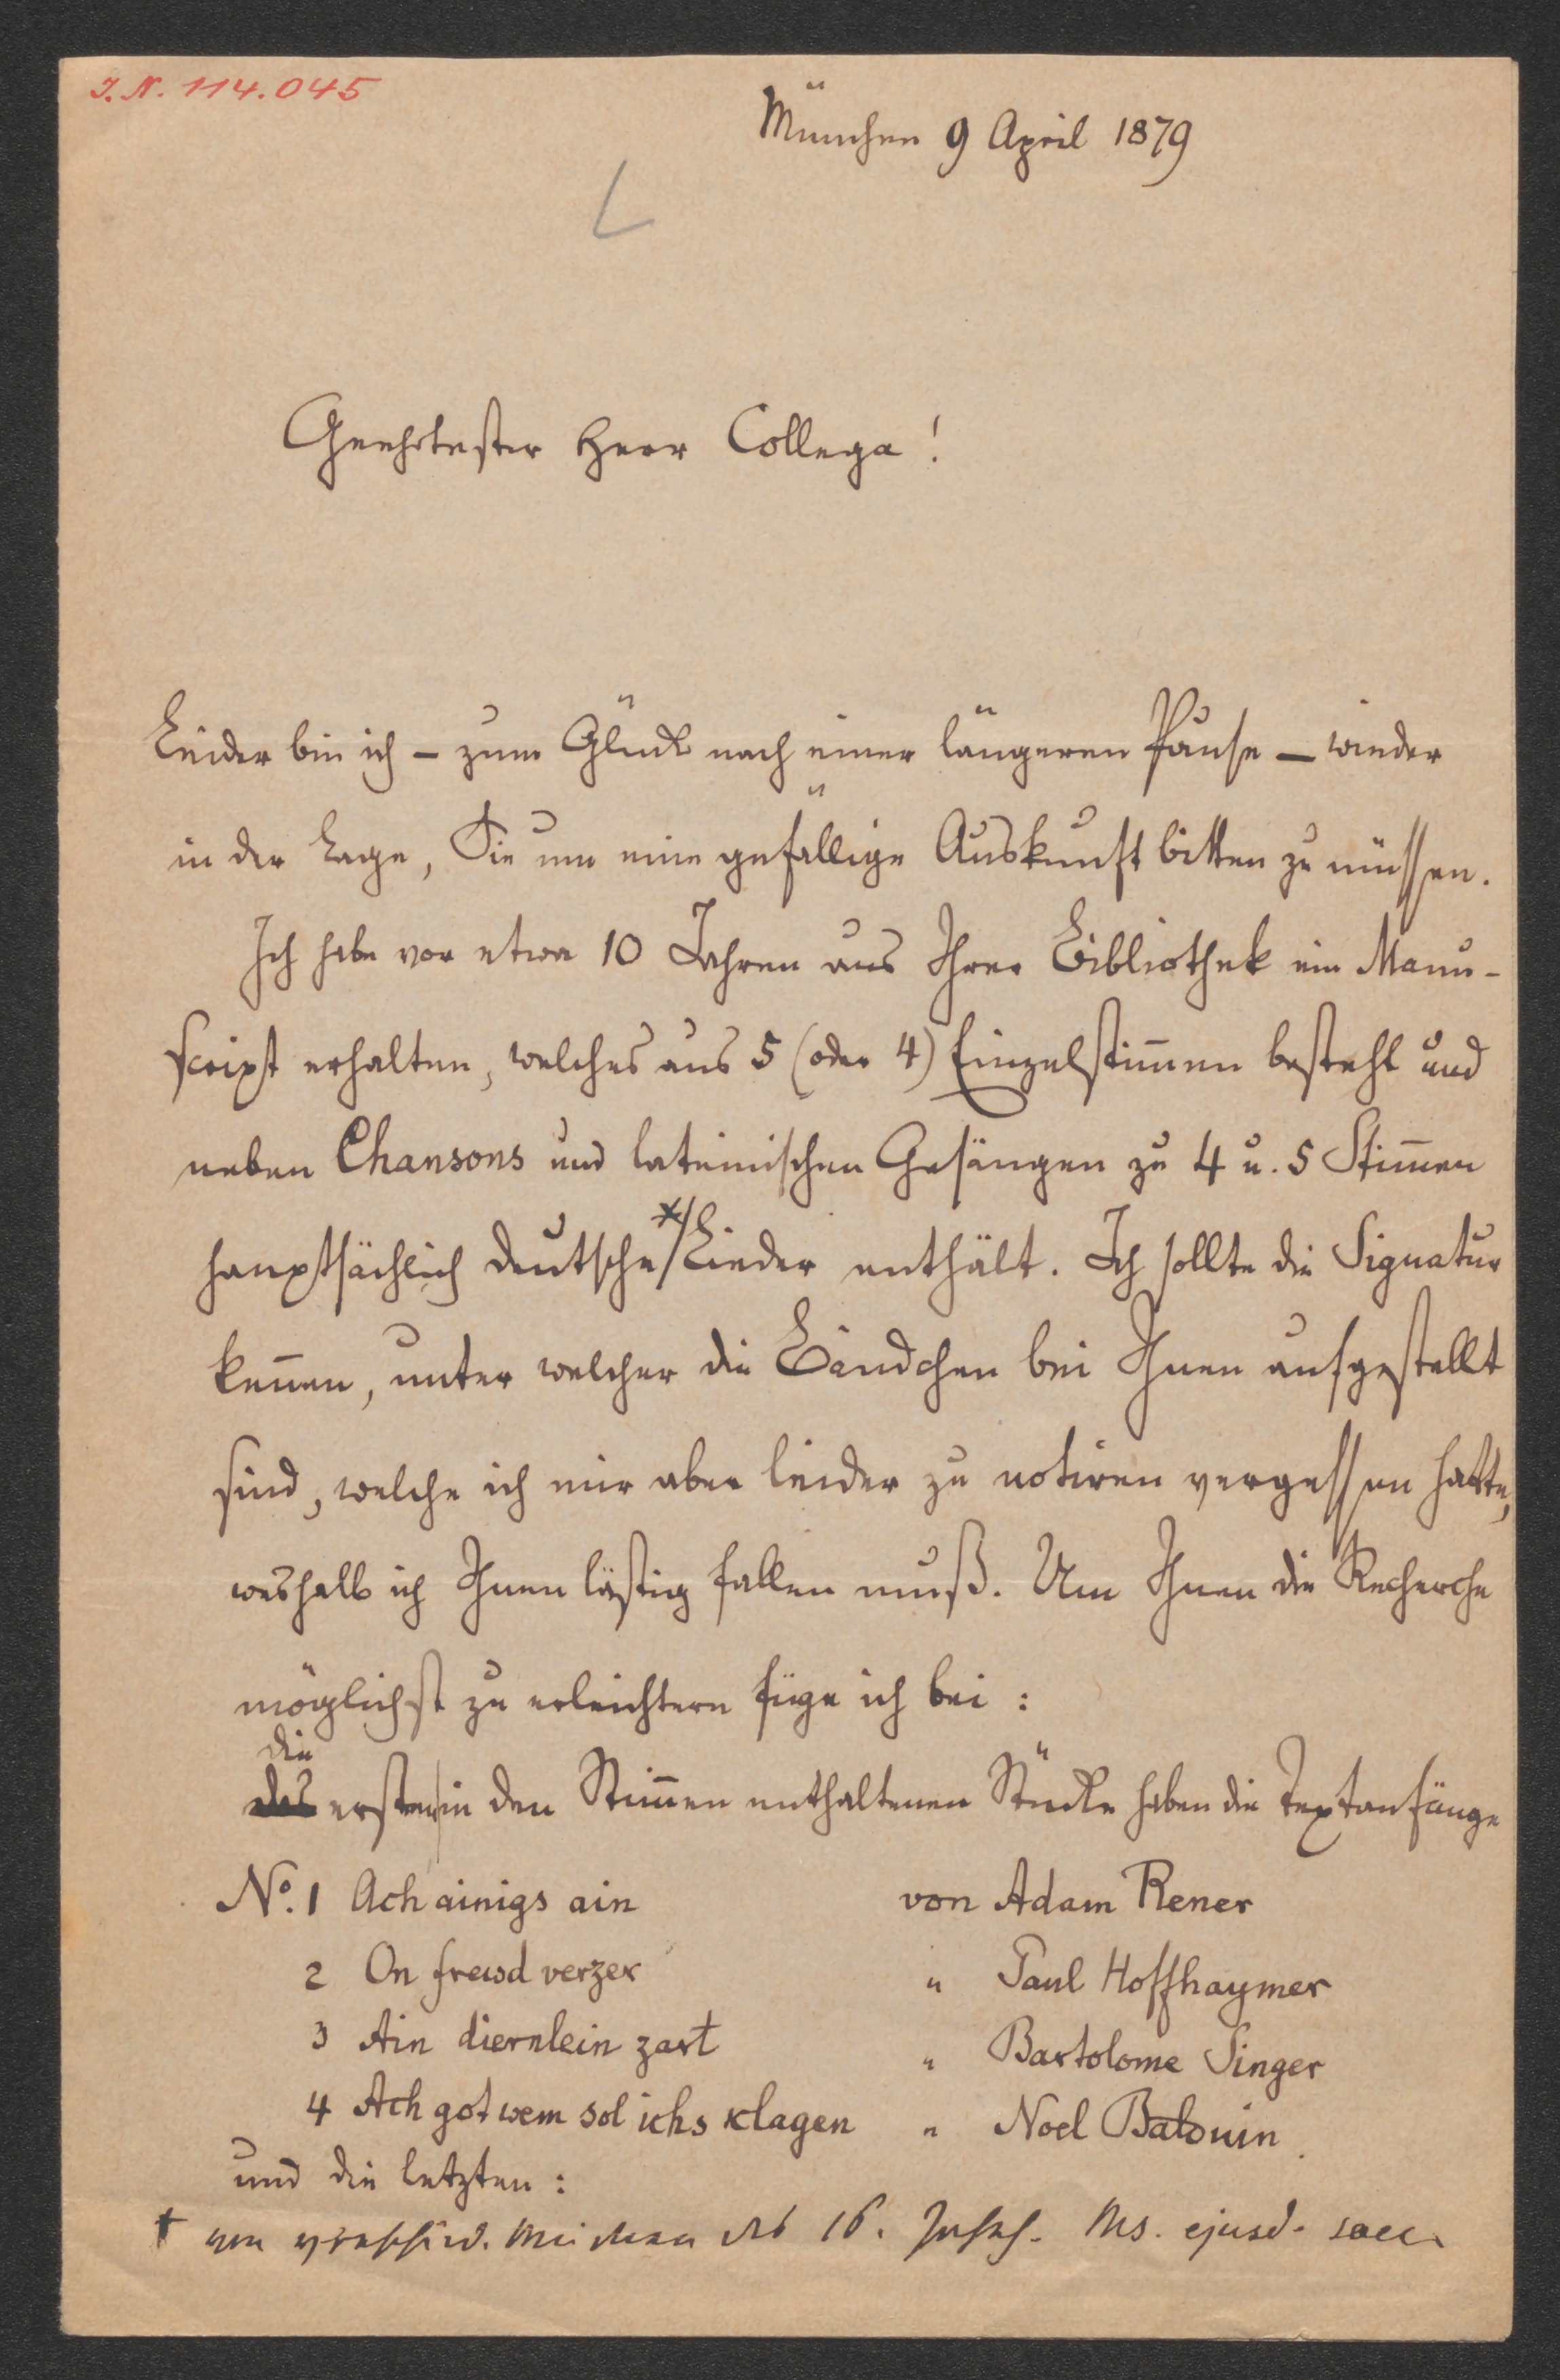 J. N. 114.045
München 9 April 1879
Geehrtester Herr Collega!
Leider bin ich – zum Glück nach einer längeren Pause – wieder
in der Lage, Sie um eine gefällige Auskunft bitten zu müssen.
Ich habe vor etwa 10 Jahren aus Ihrer Bibliothek ein Manu-
script erhalten, welches aus 5 (oder 4) Einzelstim̅en besteht und
neben Chansons und lateinischen Gesängen zu 4 u. 5 Stim̅en
hauptsächlich deutsche */ Lieder enthält. Ich sollte die Signatur
ken̅en, unter welcher die Bändchen bei Ihnen aufgestellt
sind, welche ich mir aber leider zu notiren vergessen hatte,
weshalb ich Ihnen lästig fallen muß. Um Ihnen die Recherche
möglichst zu erleichtern füge ich bei:
die
das ersten in den Stim̅en enthaltenen Stücke haben die Textanfänge
No. 1 Ach ainigs ain von Adam Rener
2 On frewd verzer " Paul Hoffhaymer
3 Ain diernlein zart " Bartolome Singer
4 Ach got wem sol ichs klagen " Noel Balduin
und die letzten:
† von verschied. Meistern des 16. Jahrh. Ms. ejusd. saec.